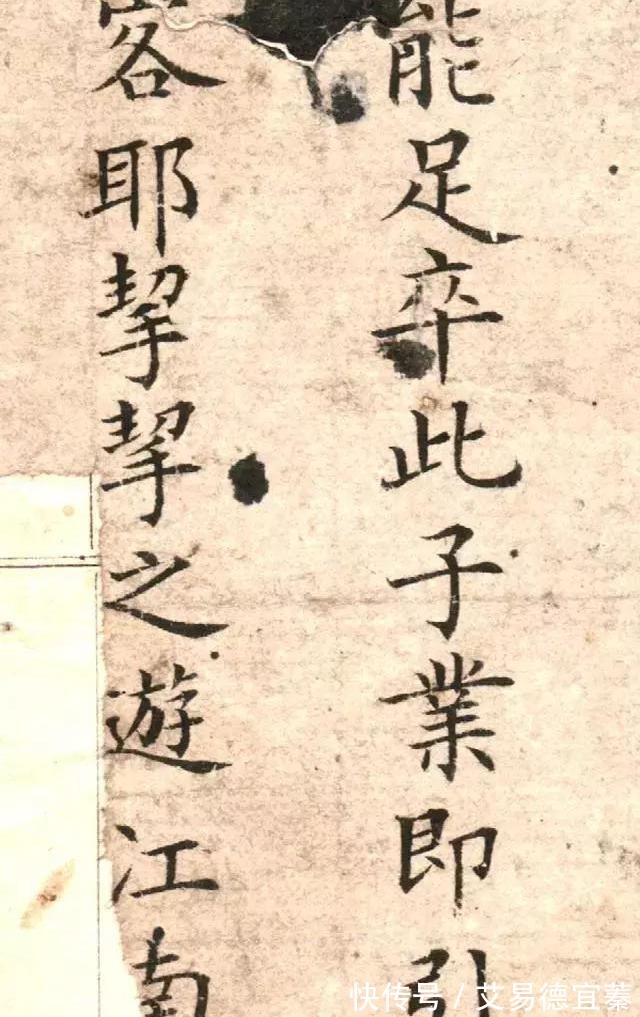 能足卒此子業即引
客耶挈挈之遊江南
快传号/艾易德宜蓁